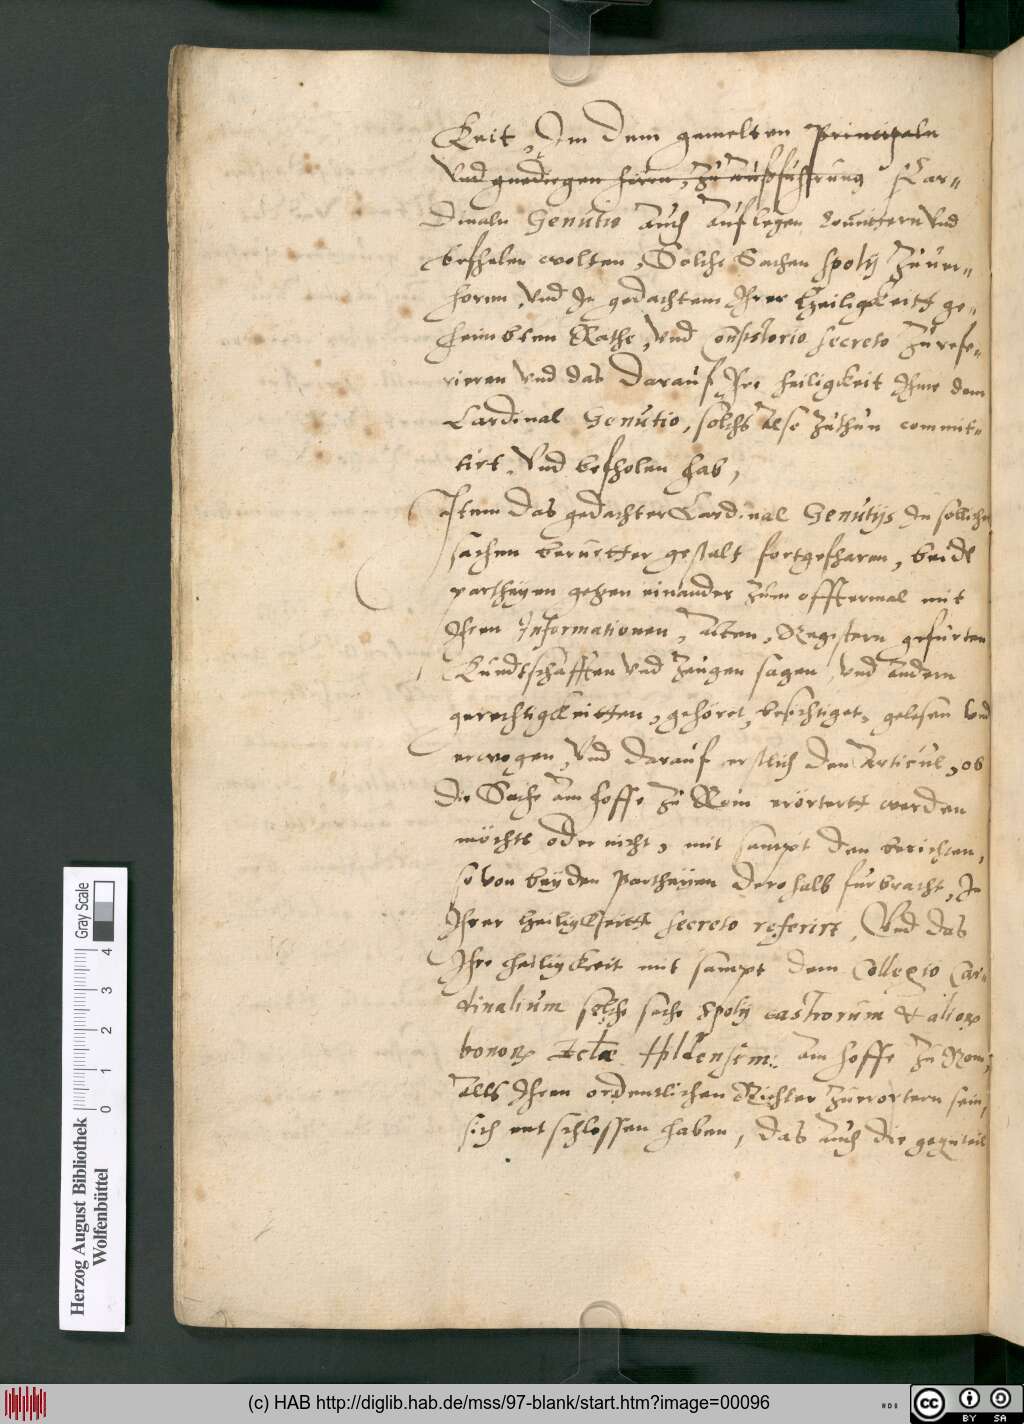 Keit, Im dem gemelten Principaln
Vnd gnedigen herrn, zu außfuhrung Car-
dinaln Genutio auch auflegen Com̄ittern Vnd
befhelen wolten, Solche Sachen spolij zuuer-
horen, Vnd In gedachtem Ihrer Heiligkeitt ge-
heimbten Rathe, Vnd Consistorio secreto zu refe-
rieren Vnd das darauf Ihre heiligkeit Ihme dem
Cardinal Genutio, solchs also zuthun commit-
tirt, Vnd befholen hab,
Item das gedachter Cardinal Genutijs In sollichen
sachen berurtter gestalt fortgefharen, beide
partheyen gegen einander zum offtermal mit
Ihren Informationen, Acten, Registern gefurten
Kundtschafften Vnd Zeugen sagen, Vnd andern
gerechtigkeitten, gehöret, besichtiget, gelesen Vnd
erwogen, Vnd darauf erstlich den Articul, ob
die Sache am hoffe zu Rom erörtertt werden
möchte oder nicht, mit sampt den berichten,
so von beyden Partheyen derohalb furbracht, In
Ihrer Heiligkeitt secreto referirt, Vnd das
Ihre heiligkeit mit sampt dem Collegio Car-
dinalium solche sache Spolij castrorum & alioꝝ
bonoꝝ Eclæ Hildensem: am hoffe zu Rom,
Alls Ihren ordentlichen Richter zuerortern sein,
sich entschlossen haben, das auch die gegenteil
Herzog August Bibliothek
Wolfenbüttel
Gray Scale
0 1 2 3 4
(c) HAB http://diglib.hab.de/mss/97-blank/start.htm?image=00096
cc BY SA